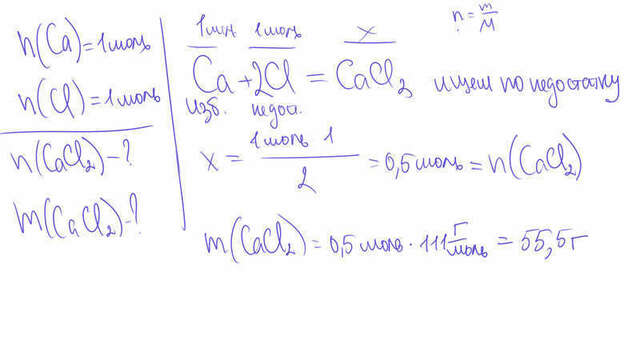 n(Ca)=1моль
n(Cl)=1моль
n(CaCl₂)-?
m(CaCl₂)-?
n = m/M
1моль 1моль x
Ca + 2Cl = CaCl₂ ищем по недостатку
изб. недост.
x = 1моль 1 / 2 = 0,5моль = n(CaCl₂)
m(CaCl₂) = 0,5моль · 111 г/моль = 55,5г